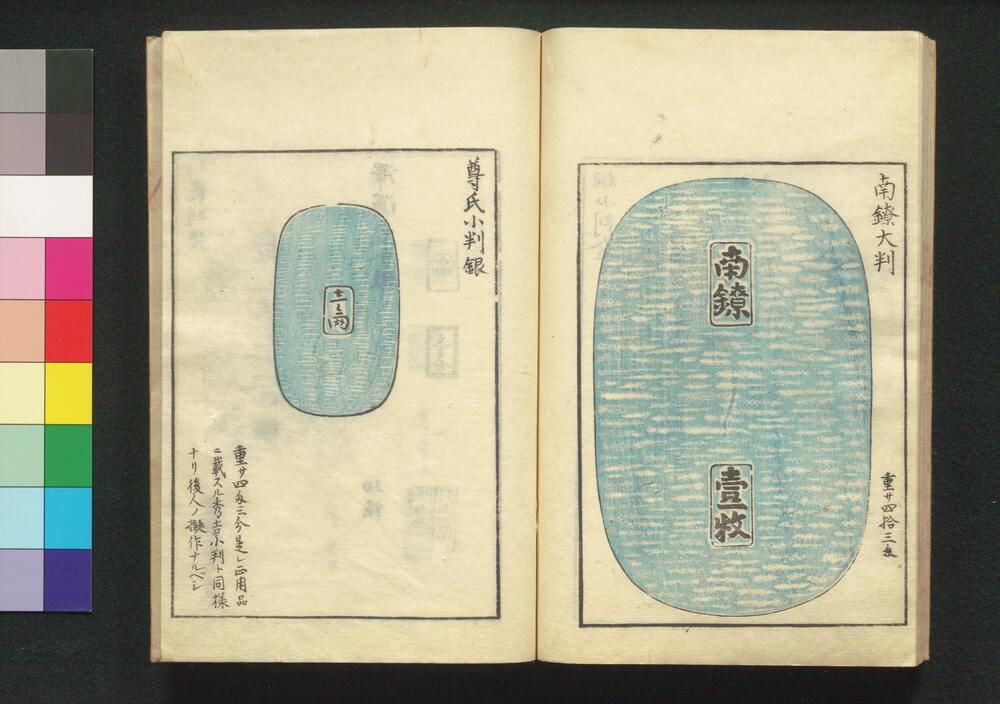 南鐐大判
南鐐
壹枚
重サ四拾三匁
尊氏小判銀
重サ四匁三分是レ正用品
ニ載スル秀吉小判ト同様
ナリ後人ノ擬作ナルベシ